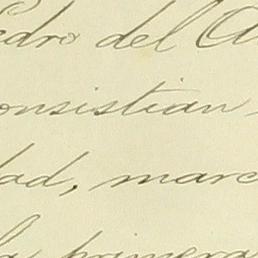 Pedro del
consistian
dad, marc
la primera